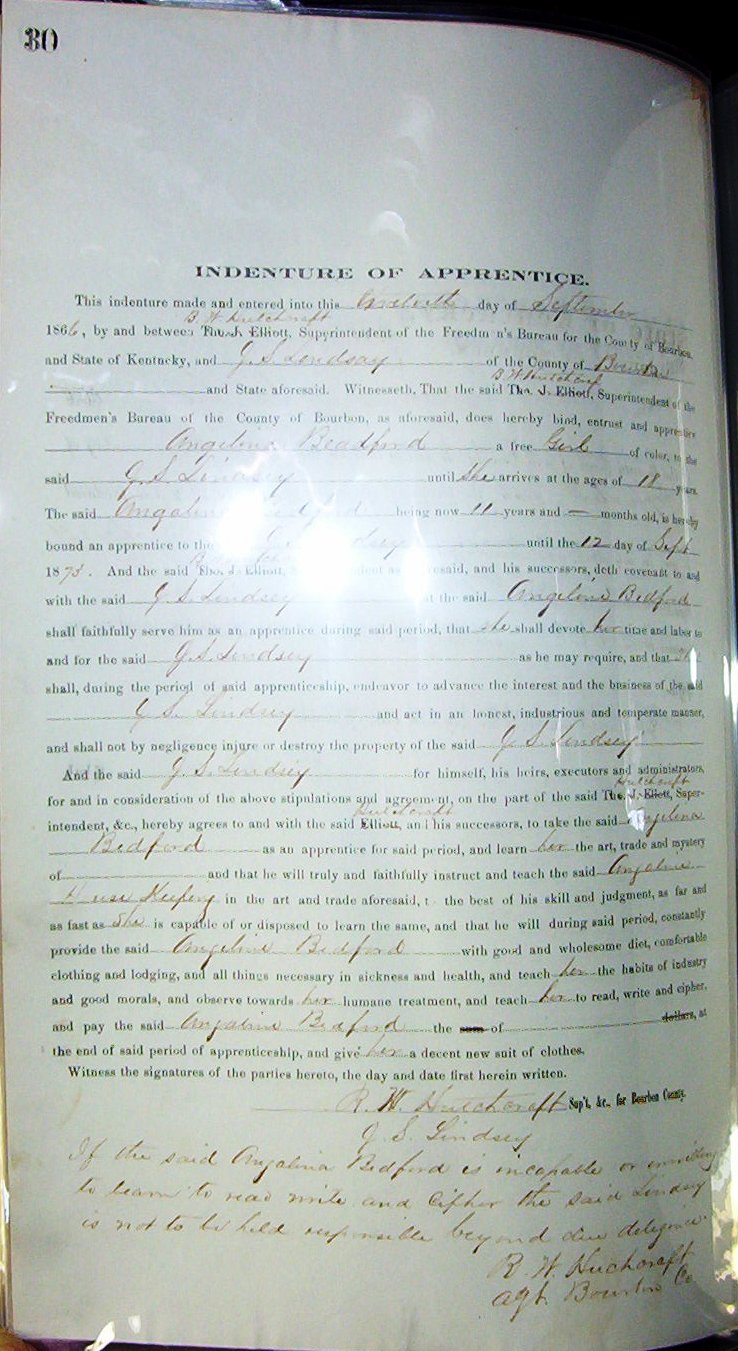 30
INDENTURE OF APPRENTICE.
This indenture made and entered into this Twelveth day of September
B W Hutchcraft
1866, by and between Tho. J. Elliott, Superintendent of the Freedmen's Bureau for the County of Bourbon,
and State of Kentucky, and J. S. Lindsay of the County of Bourbon
B W Hutchcraft
and State aforesaid. Witnesseth, That the said Tho. J. Elliott, Superintendent of the
Freedmen's Bureau of the County of Bourbon, as aforesaid, does hereby bind, entrust and apprentice
Angelina Beadford a free Girl of color, to the
said J S Lindsey until She arrives at the ages of 18 years.
The said Angalina Bedford being now 11 years and — months old, is hereby
bound an apprentice to the until the 12 day of Sept
1873. And the said Tho. J. Elliott, as aforesaid, and his successors, doth covenant to and
with the said J. S. Lindsey that the said Angelina Bedford
shall faithfully serve him as an apprentice during said period, that she shall devote her time and labor to
and for the said J. S. Lindsey as he may require, and that
shall, during the period of said apprenticeship, endeavor to advance the interest and the business of the said
J S. Lindsey and act in an honest, industrious and temperate manner,
and shall not by negligence injure or destroy the property of the said J. S. Lindsey
And the said J. S Lindsey for himself, his heirs, executors and administrators,
Hutchcraft
for and in consideration of the above stipulations and agreement, on the part of the said Tho. J. Elliott, Super-
Hutchcraft
intendent, &c., hereby agrees to and with the said Elliott, and his successors, to take the said Angelina
Bedford as an apprentice for said period, and learn her the art, trade and mystery
of and that he will truly and faithfully instruct and teach the said Angalina
House Keeping in the art and trade aforesaid, to the best of his skill and judgment, as far and
as fast as She is capable of or disposed to learn the same, and that he will during said period, constantly
provide the said Angelina Bedford with good and wholesome diet, comfortable
clothing and lodging, and all things necessary in sickness and health, and teach her the habits of industry
and good morals, and observe towards her humane treatment, and teach her to read, write and cipher,
and pay the said Angalina Bedford the sum of dollars, at
the end of said period of apprenticeship, and give her a decent new suit of clothes.
Witness the signatures of the parties hereto, the day and date first herein written.
R. W. Hutchcraft Sup't, &c., for Bourbon County.
J. S. Lindsey
If the said Angalina Bedford is incapable or unwilling
to learn to read write and Cipher the said Lindsey
is not to be held responsible beyond due deligence
R. W. Huchcraft
agt. Bourbon Co